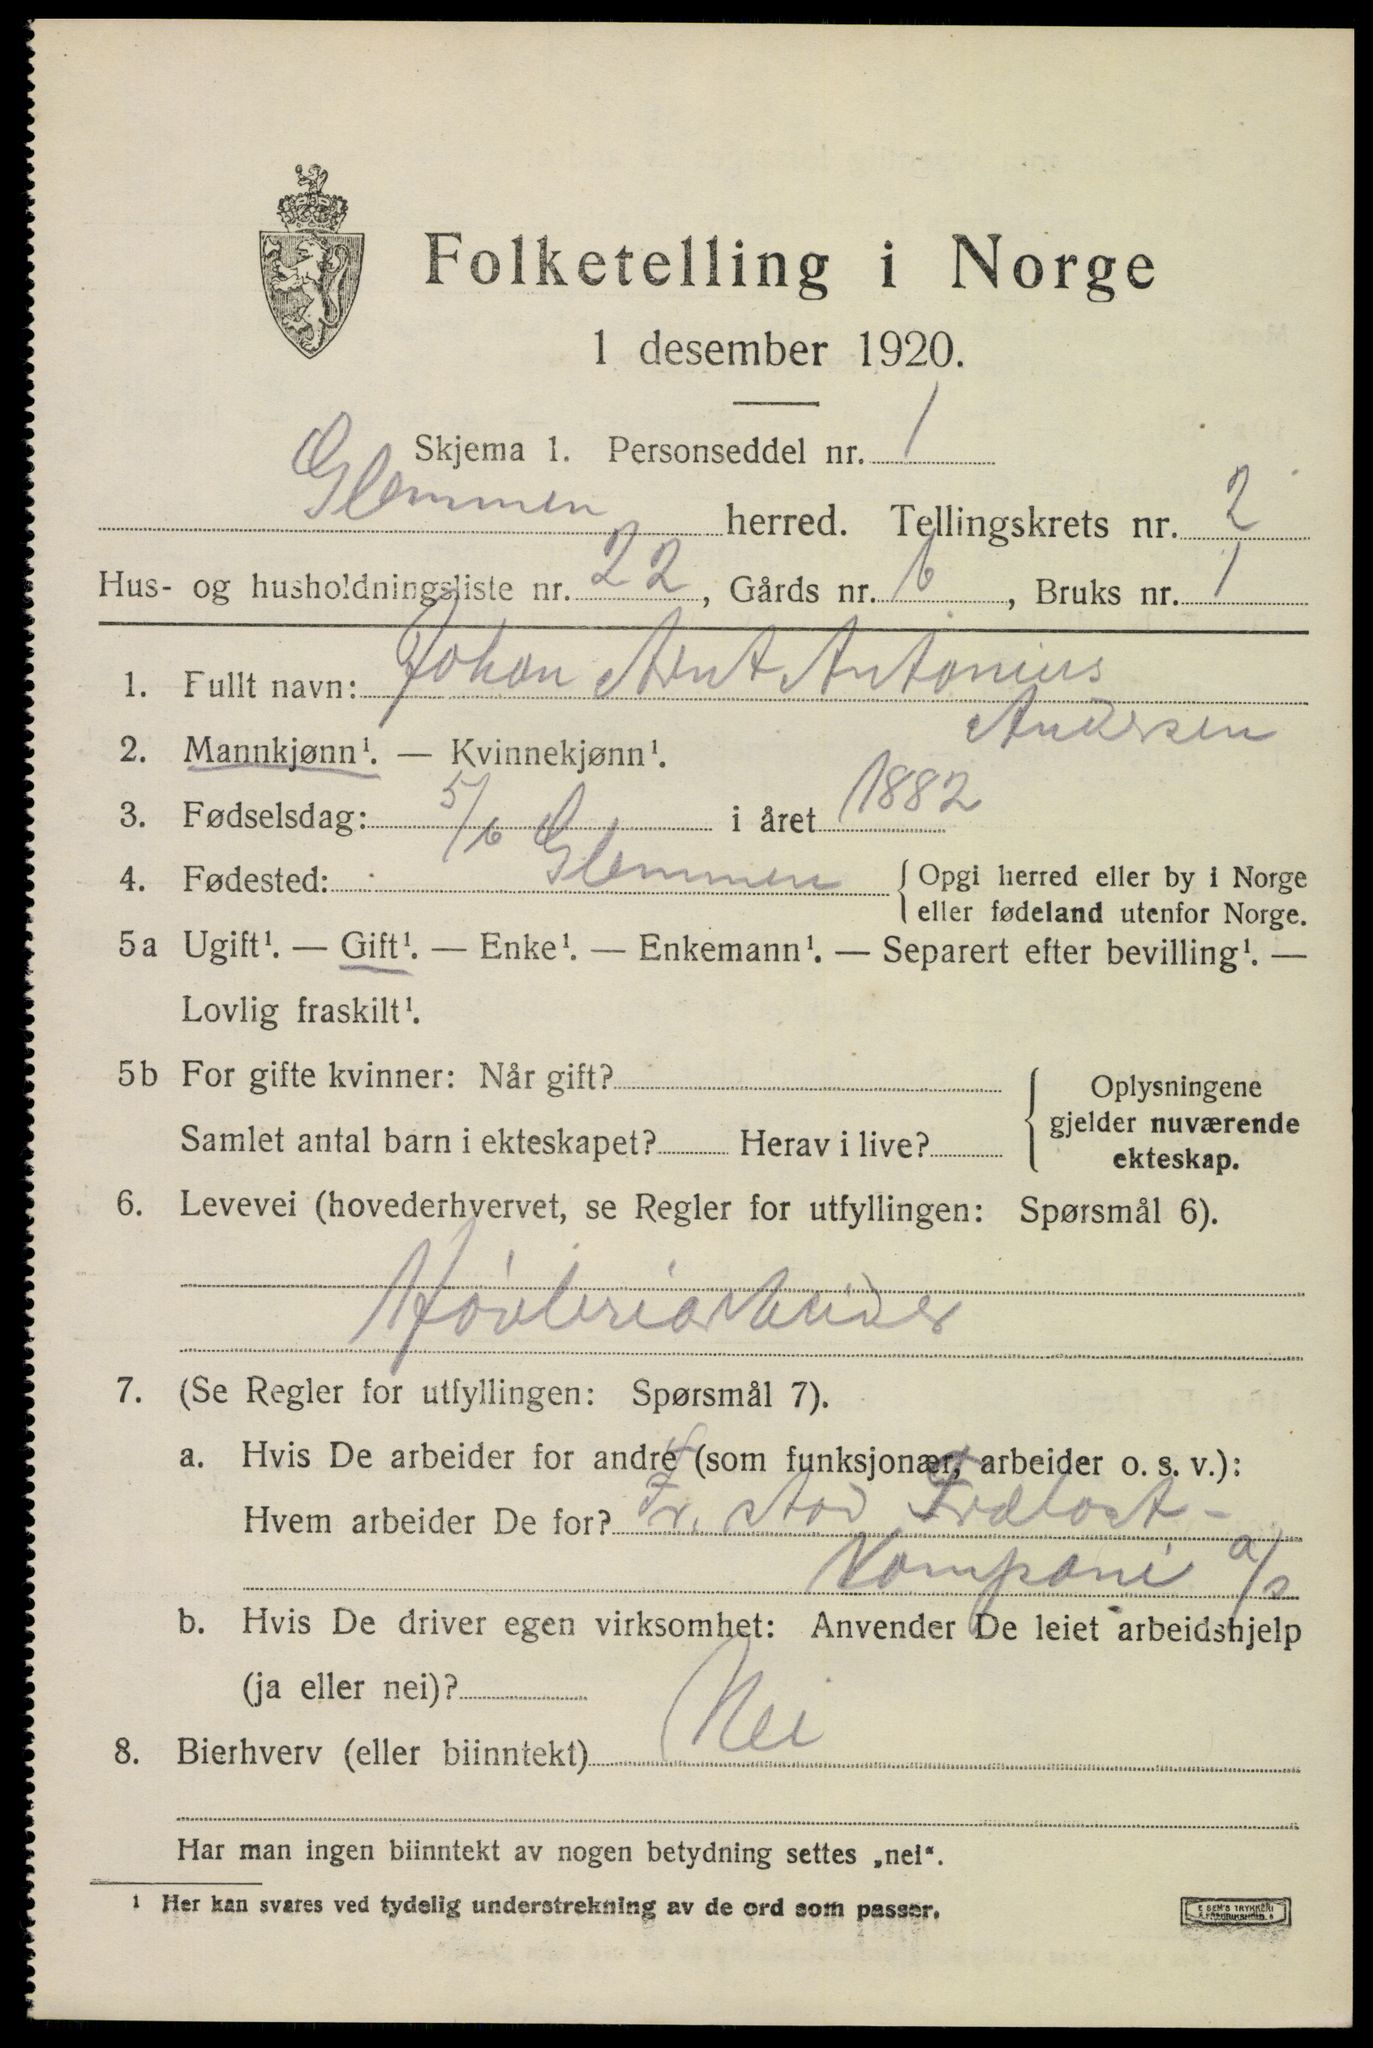 Folketelling i Norge
1 desember 1920.
Skjema 1. Personseddel nr. 1
Glemmen herred. Tellingskrets nr. 2
Hus- og husholdningsliste nr. 22, Gårds nr. 6, Bruks nr. 1
1. Fullt navn: Johan Arnt Antonius
Andersen
2. Mannkjønn¹. — Kvinnekjønn¹.
3. Fødselsdag: 5/6 i året 1882
4. Fødested: Glemmen { Opgi herred eller by i Norge
eller fødeland utenfor Norge.
5a Ugift¹. — Gift¹. — Enke¹. — Enkemann¹. — Separert efter bevilling¹. —
Lovlig fraskilt¹.
5b For gifte kvinner: Når gift?
Samlet antal barn i ekteskapet? Herav i live?
{ Oplysningene
gjelder nuværende
ekteskap.
6. Levevei (hovederhvervet, se Regler for utfyllingen: Spørsmål 6).
Høvleriarbeider
7. (Se Regler for utfyllingen: Spørsmål 7).
a. Hvis De arbeider for andre (som funksjonær, arbeider o. s. v.):
Hvem arbeider De for? Fr. stad Trælast-
Kompani a/s
b. Hvis De driver egen virksomhet: Anvender De leiet arbeidshjelp
(ja eller nei)?
8. Bierhverv (eller biinntekt) Nei
Har man ingen biinntekt av nogen betydning settes „nei“.
¹ Her kan svares ved tydelig understrekning av de ord som passer.
E SEM'S TRYKKERI